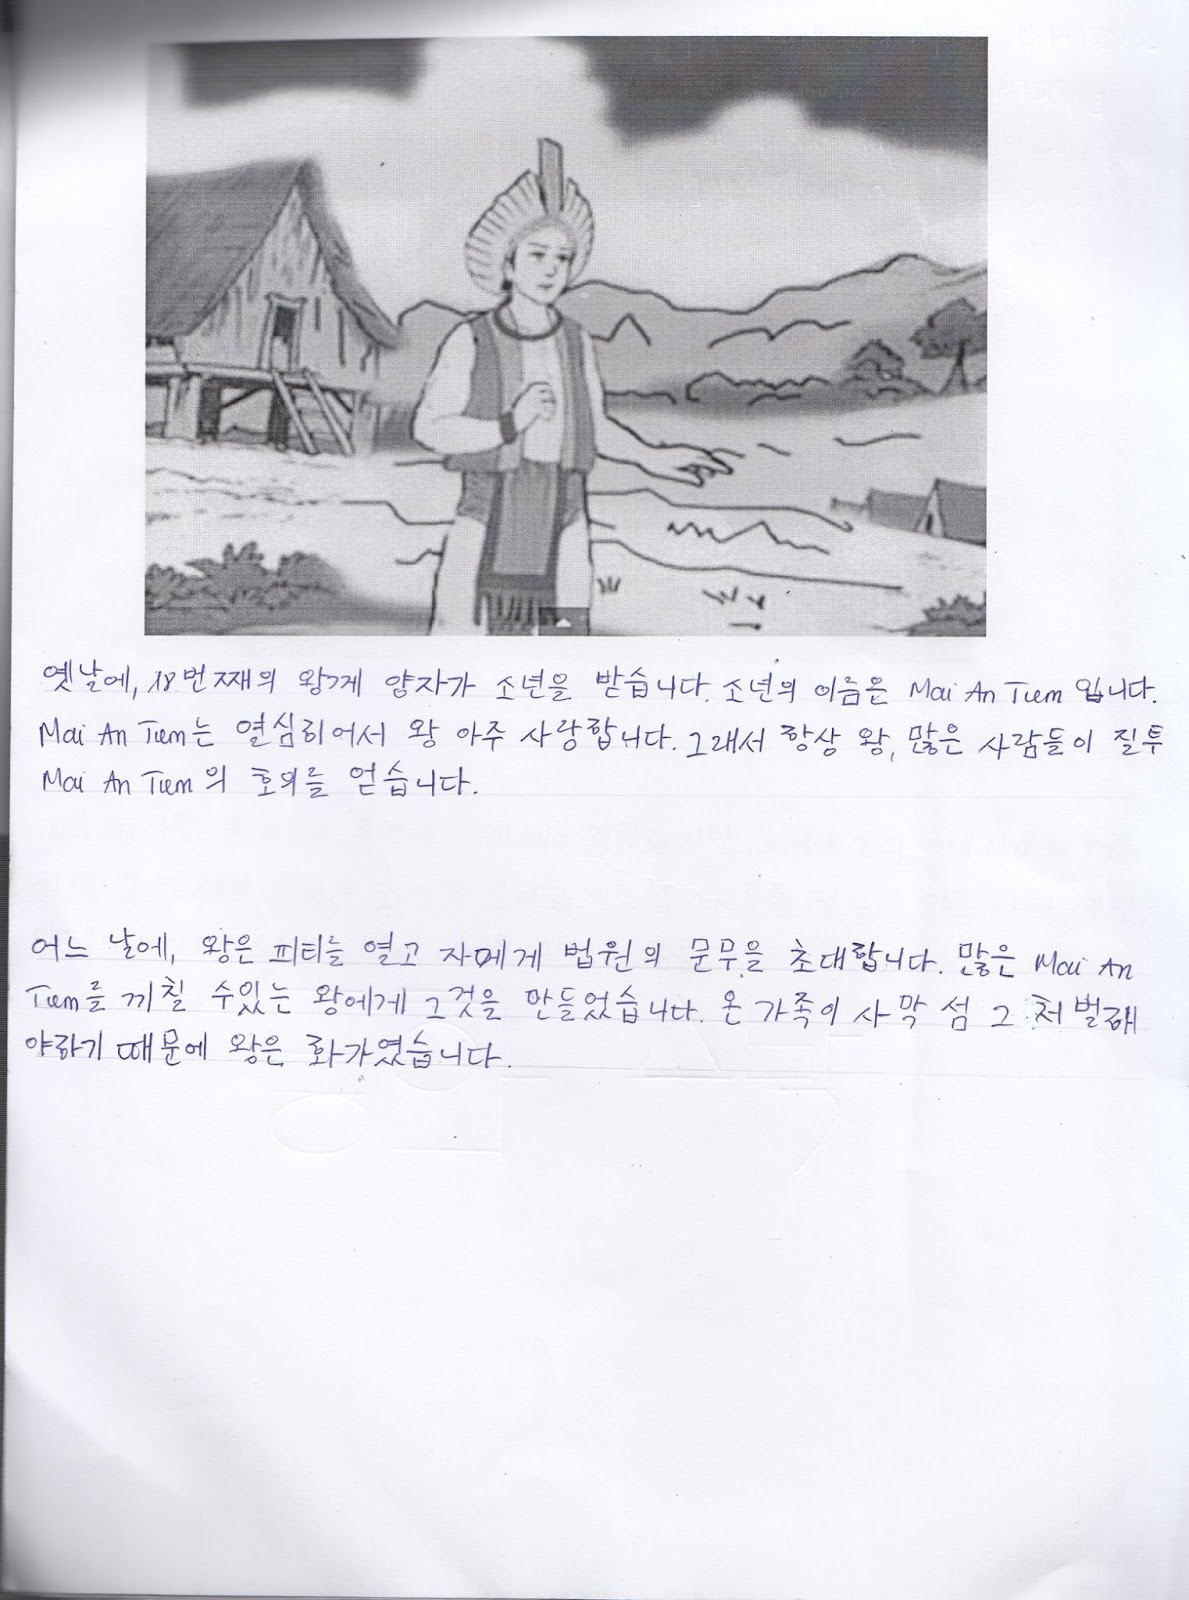 옛날에, 18번째의 왕게 양자가 소년을 받습니다. 소년의 이름은 Mai An Tiem 입니다.
Mai An Tiem는 열심리어서 왕 아주 사랑합니다. 그래서 항상 왕, 많은 사람들이 질투
Mai An Tiem의 호의를 얻습니다.
어느 날에, 왕은 피티를 열고 자메게 법원의 문무을 초대합니다. 많은 Mai An
Tiem를 끼칠 수있는 왕에게 그것을 만들었습니다. 온 가족이 사막 섬 그 처벌해
야하기 때문에 왕은 화가였습니다.